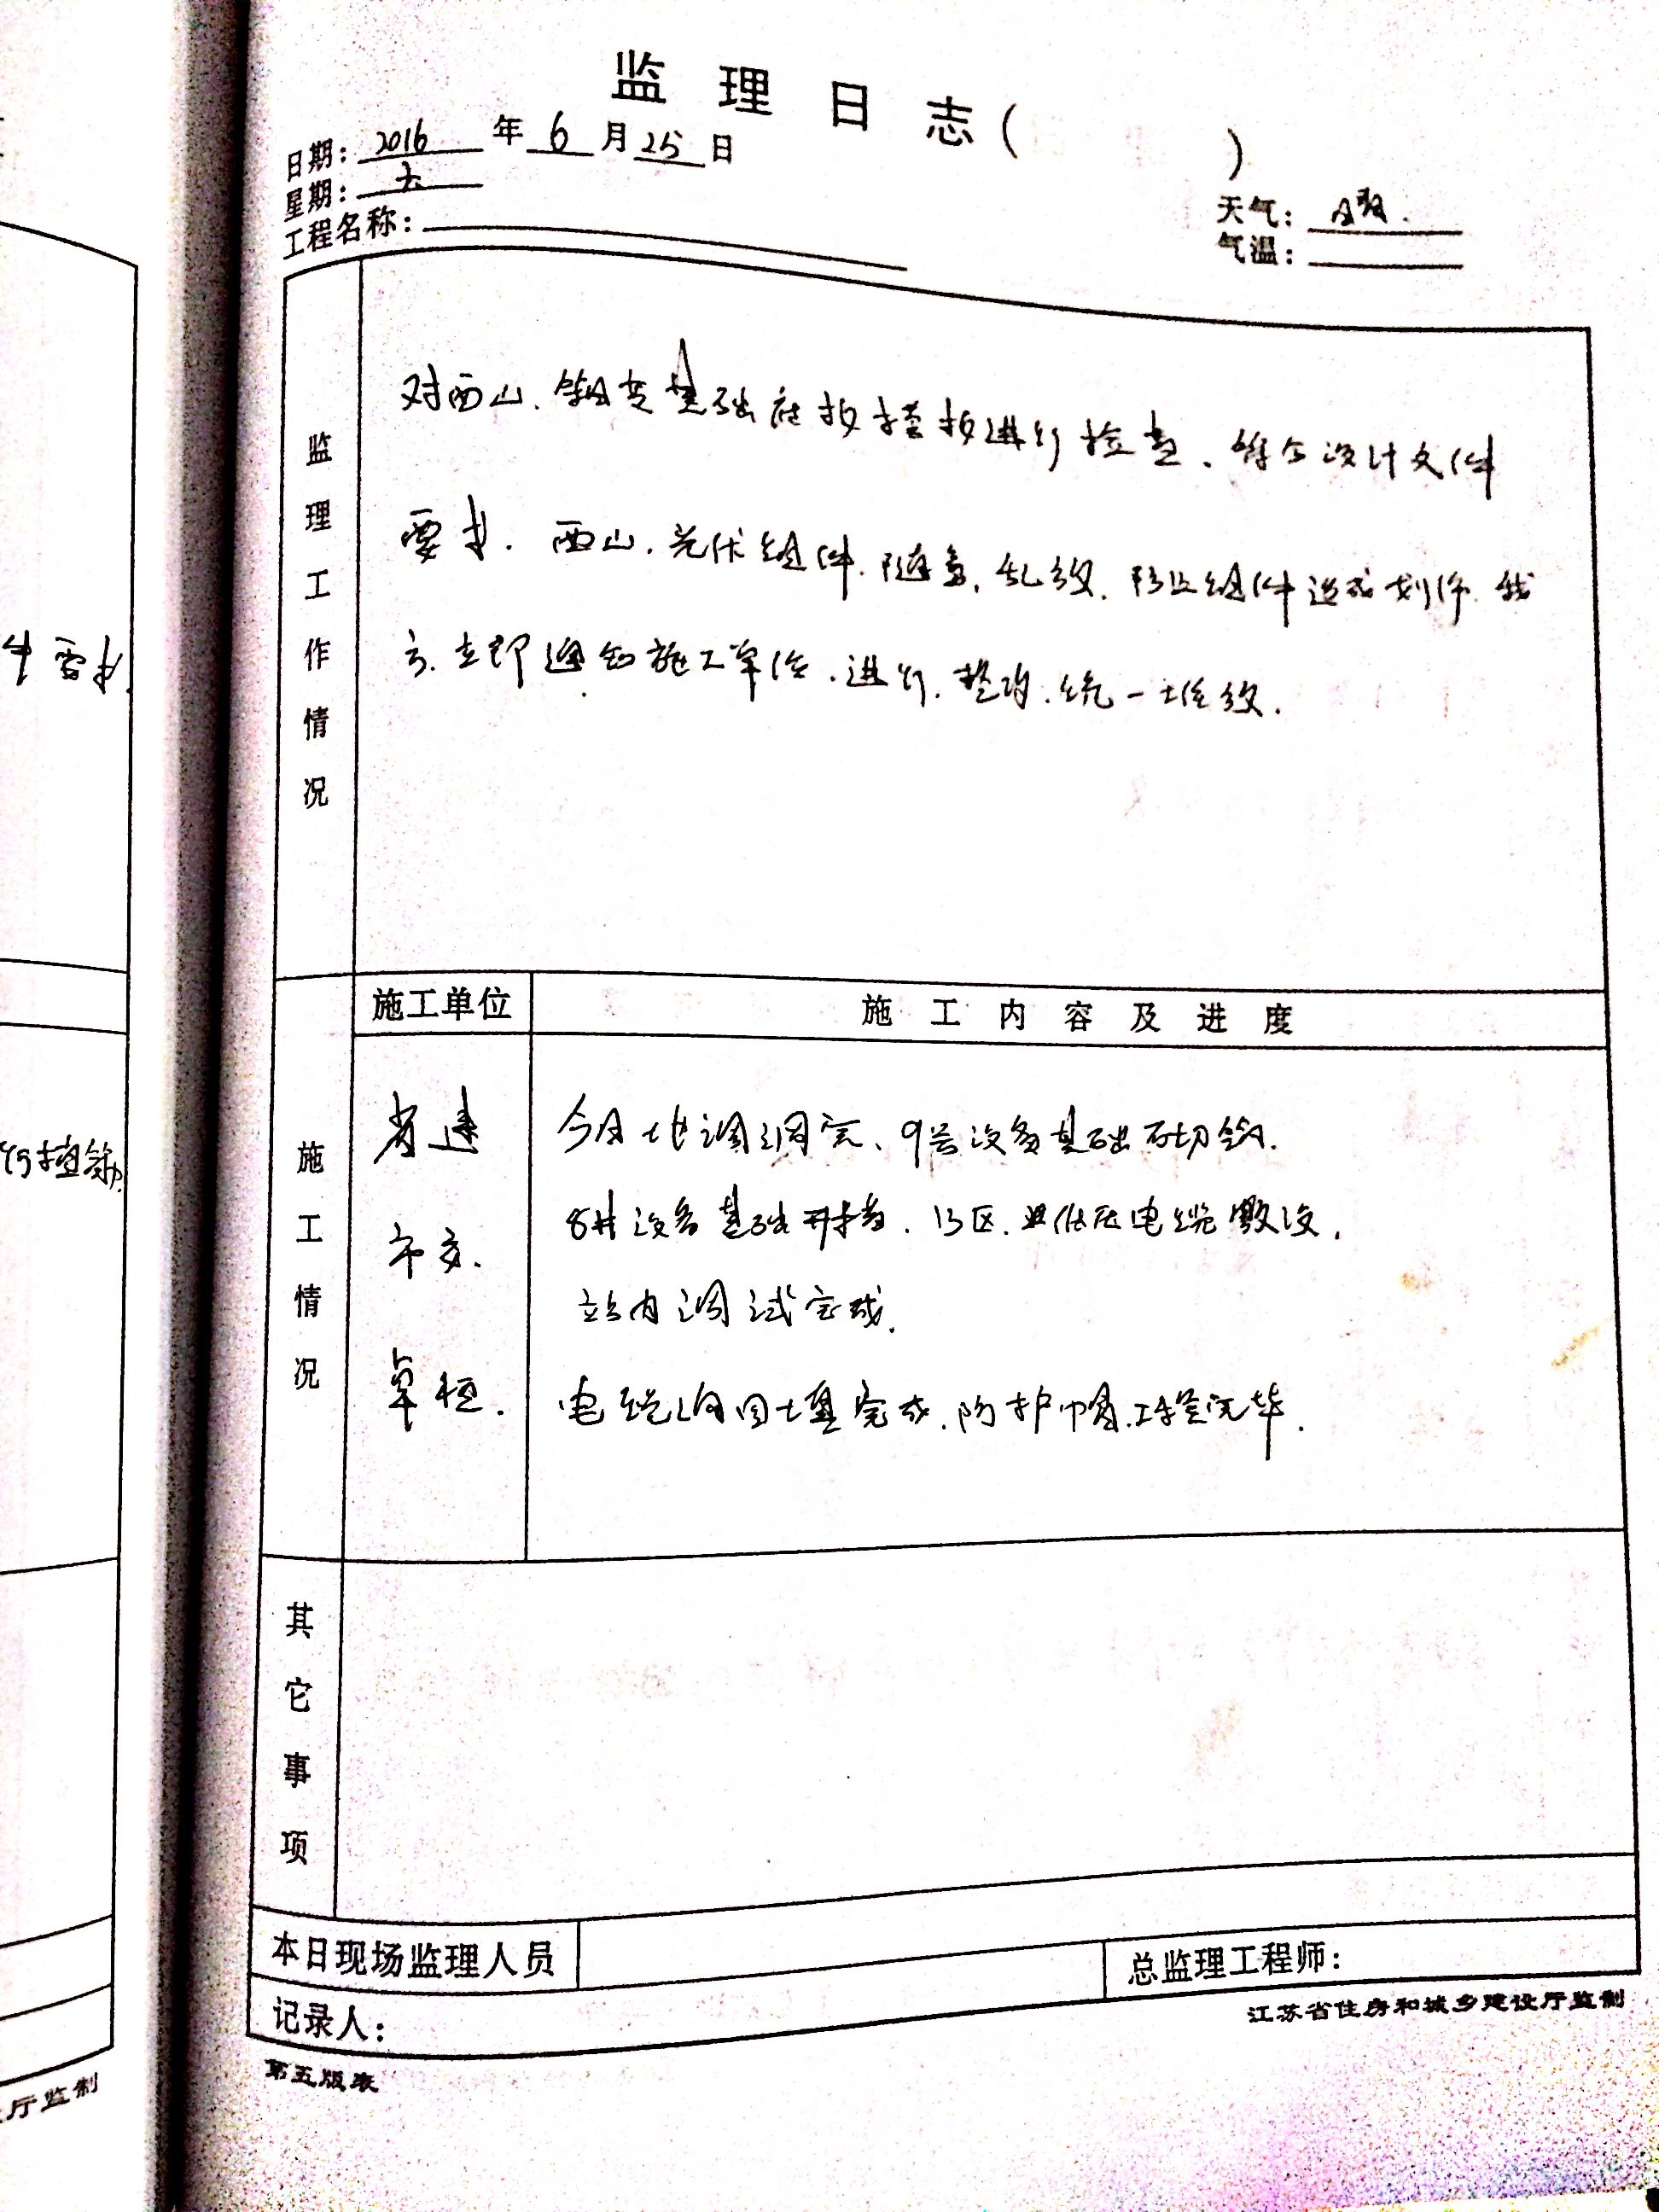 监理日志( )
日期: 2016 年 6 月 25 日
星期: 六
天气: 晴.
工程名称:
气温:
监理工作情况
对西山、箱变基础底板模板进行检查、符合设计文件
要求. 西山、光伏组件. 随意、乱放. 防止组件造成划伤. 我
方. 立即通知施工单位、进行. 整改. 统一堆放.
施工情况
施工单位
施工内容及进度
省建
今日
9号设备基础
8#设备基础开挖. 13区. 低压电缆敷设.
市交.
站内调试完成.
卓恒.
电缆沟回土填完成. 防护帽. 完毕.
其它事项
本日现场监理人员
总监理工程师:
记录人:
江苏省住房和城乡建设厅监制
第五版表
件要求.
厅监制